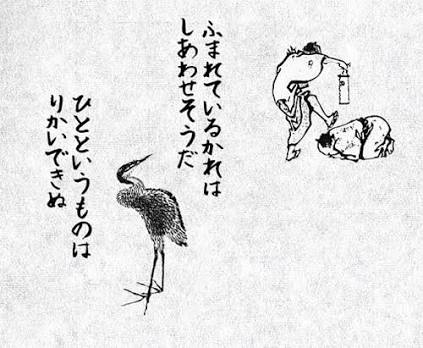 ふまれているかれは
しあわせそうだ
ひとというものは
りかいできぬ